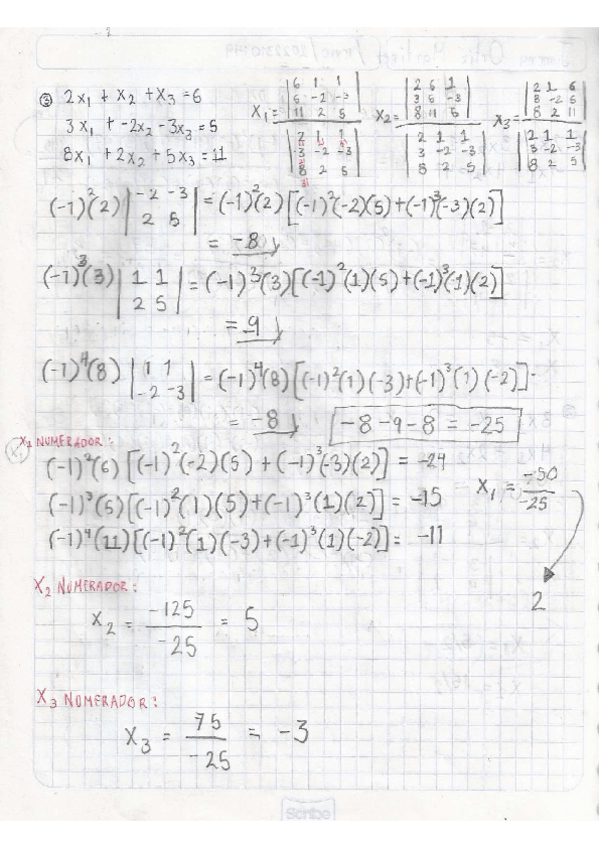 ③ 2x₁ + x₂ + x₃ = 6
3x₁ + -2x₂ - 3x₃ = 5
8x₁ + 2x₂ + 5x₃ = 11
x₁ = |6 1 1; 5 -2 -3; 11 2 5| / |2 1 1; 3 -2 -3; 8 2 5|
x₂ = |2 6 1; 3 5 -3; 8 11 5| / |2 1 1; 3 -2 -3; 8 2 5|
x₃ = |2 1 6; 8 -2 5; 8 2 11| / |2 1 1; 3 -2 -3; 8 2 5|
(-1)²(2) |-2 -3; 2 5| = (-1)²(2)[(-1)²(-2)(5) + (-1)³(-3)(2)]
= -8
(-1)³(3) |1 1; 2 5| = (-1)³(3)[(-1)²(1)(5) + (-1)³(1)(2)]
= 9
(-1)⁴(8) |1 1; -2 -3| = (-1)⁴(8)[(-1)²(1)(-3) + (-1)³(1)(-2)]
= -8
-8 - 9 - 8 = -25
X₁ NUMERADOR:
(-1)²(6)[(-1)²(-2)(5) + (-1)³(-3)(2)] = -24
(-1)³(5)[(-1)²(1)(5) + (-1)³(1)(2)] = -15
(-1)⁴(11)[(-1)²(1)(-3) + (-1)³(1)(-2)] = -11
X₁ = -50 / -25
2
X₂ NUMERADOR:
X₂ = -125 / -25 = 5
X₃ NUMERADOR:
X₃ = 75 / -25 = -3
Scribe